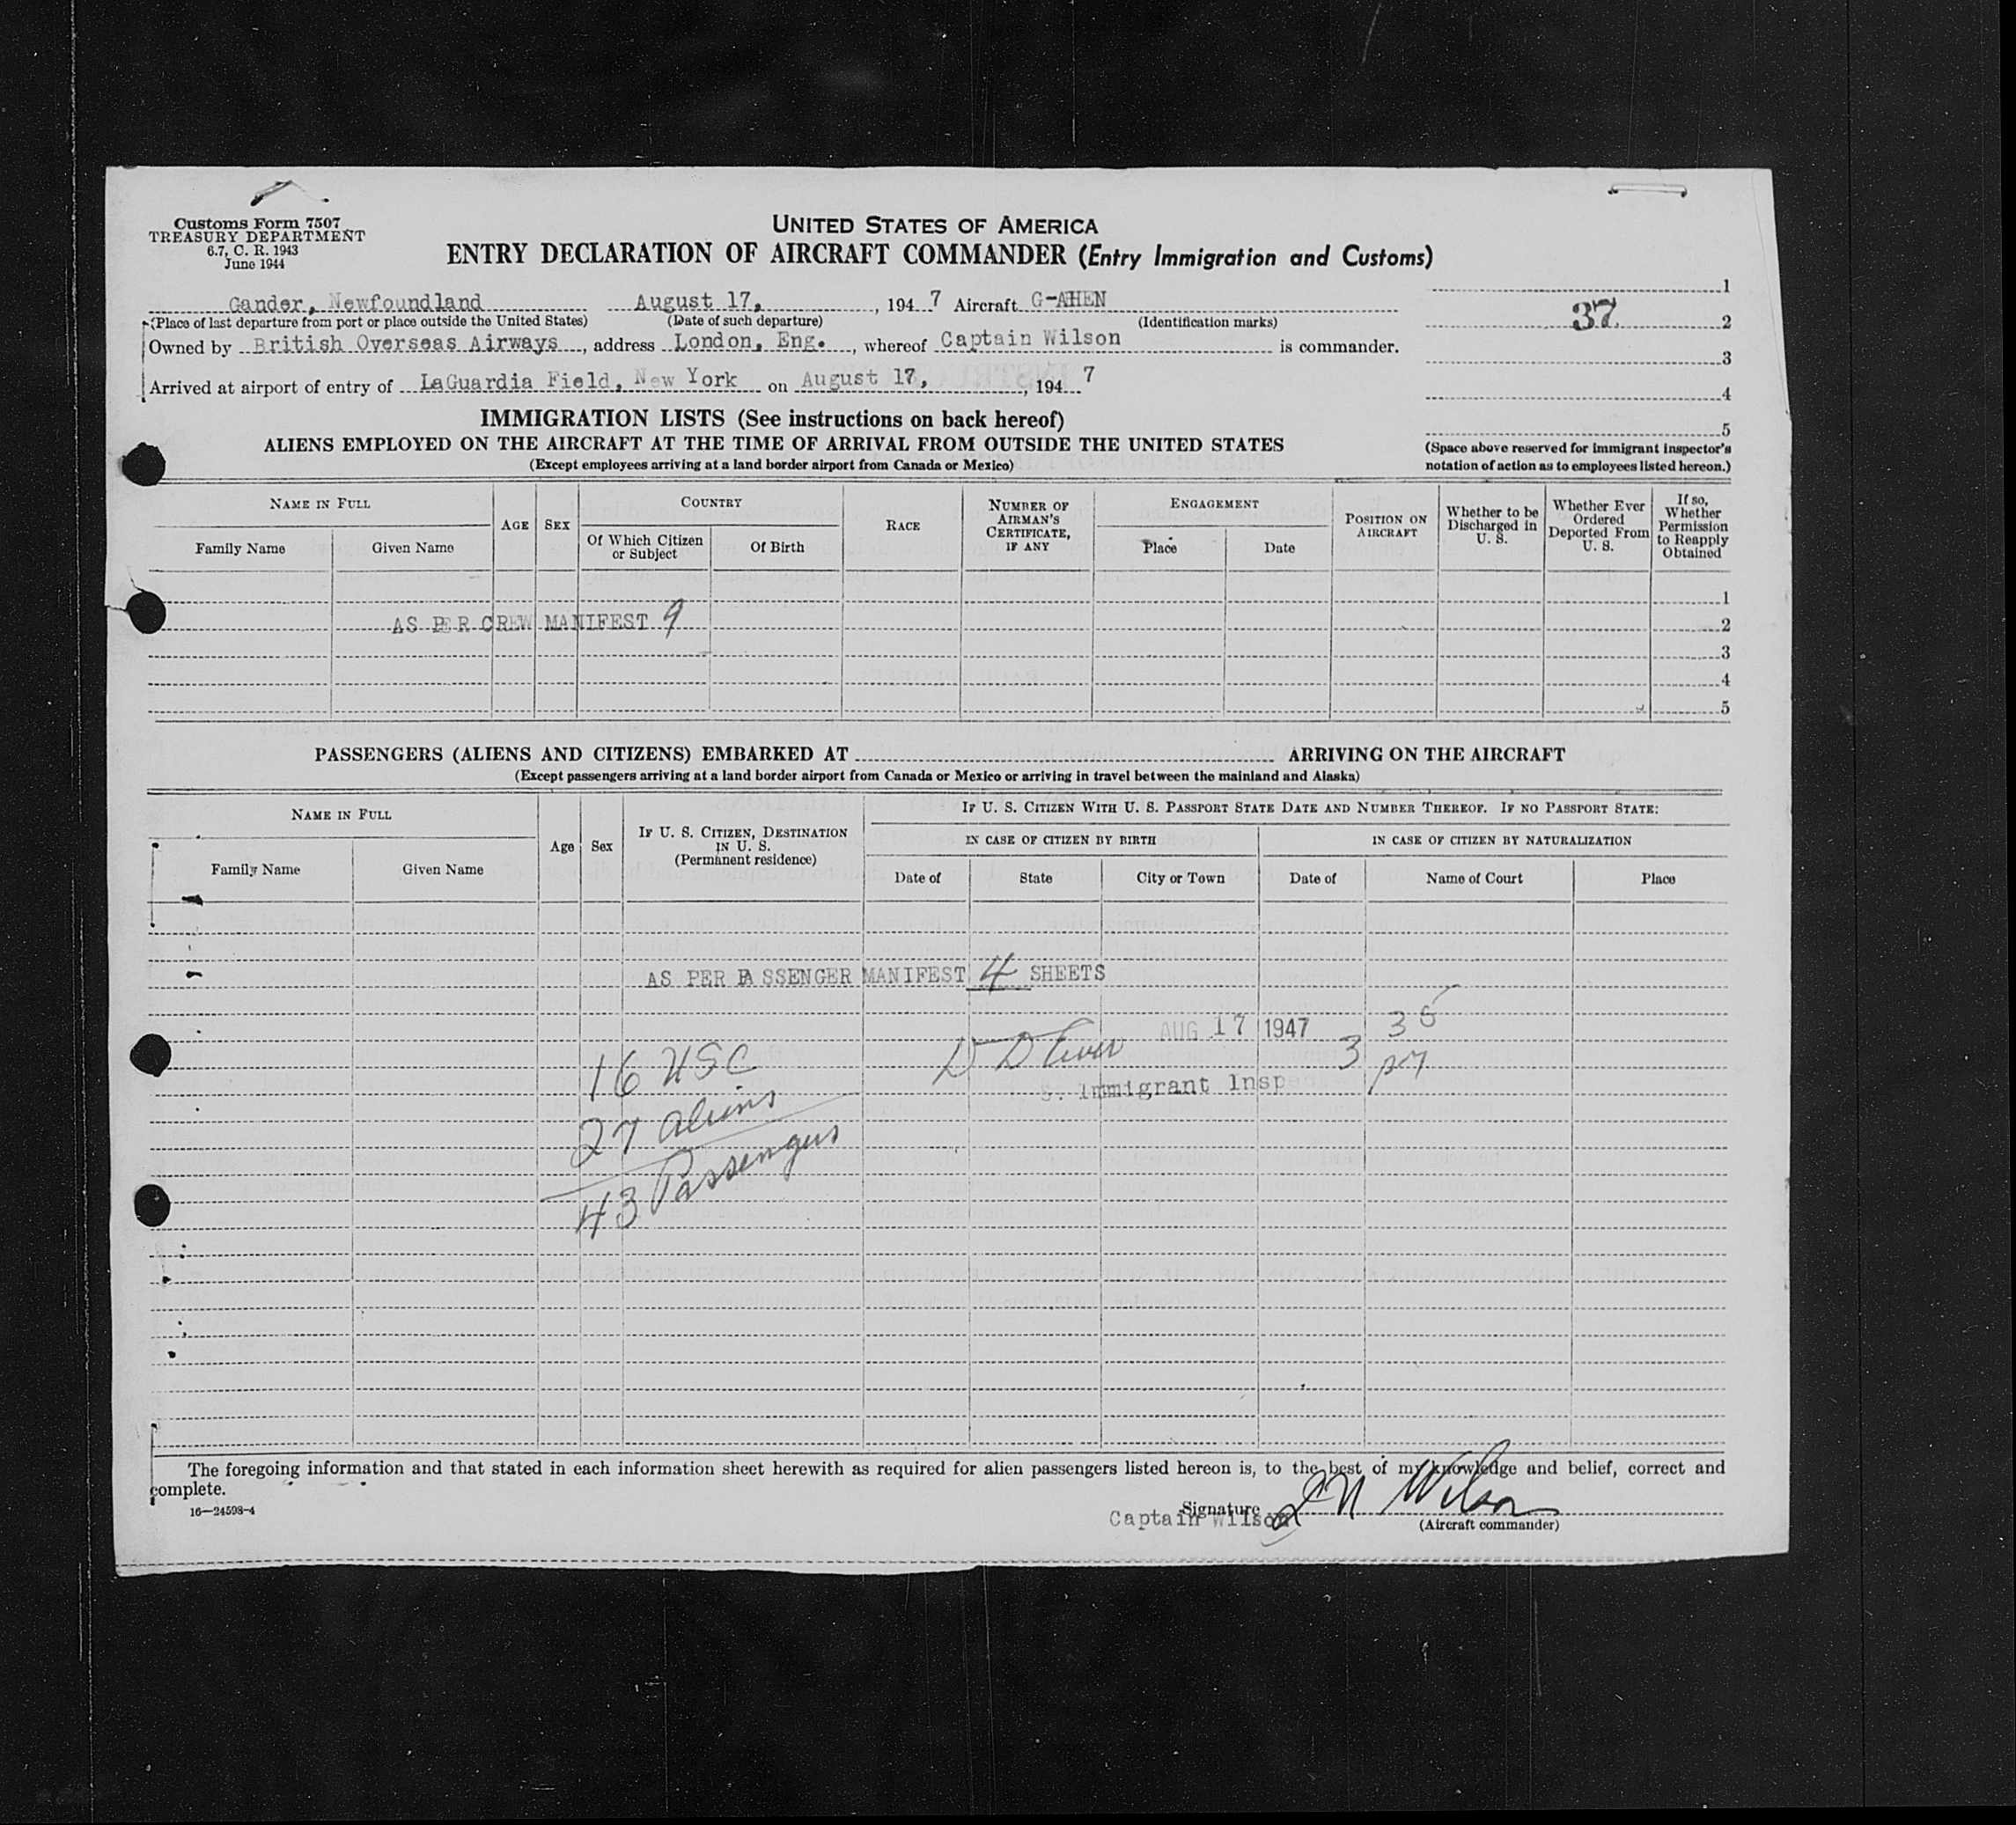 Customs Form 7507
TREASURY DEPARTMENT
6.7, C. R. 1943
June 1944
UNITED STATES OF AMERICA
ENTRY DECLARATION OF AIRCRAFT COMMANDER (Entry Immigration and Customs)
Gander, Newfoundland August 17, , 194 7 Aircraft G-AHEN
(Place of last departure from port or place outside the United States) (Date of such departure) (Identification marks)
Owned by British Overseas Airways , address London, Eng. , whereof Captain Wilson is commander.
Arrived at airport of entry of LaGuardia Field, New York on August 17, , 194 7
1
37 2
3
4
5
(Space above reserved for immigrant inspector's
notation of action as to employees listed hereon.)
IMMIGRATION LISTS (See instructions on back hereof)
ALIENS EMPLOYED ON THE AIRCRAFT AT THE TIME OF ARRIVAL FROM OUTSIDE THE UNITED STATES
(Except employees arriving at a land border airport from Canada or Mexico)
NAME IN FULL
Family Name Given Name
AGE
SEX
COUNTRY
Of Which Citizen
or Subject
Of Birth
RACE
NUMBER OF
AIRMAN'S
CERTIFICATE,
IF ANY
ENGAGEMENT
Place Date
POSITION ON
AIRCRAFT
Whether to be
Discharged in
U. S.
Whether Ever
Ordered
Deported From
U. S.
If so,
Whether
Permission
to Reapply
Obtained
1
AS PER CREW MANIFEST 9 2
3
4
5
PASSENGERS (ALIENS AND CITIZENS) EMBARKED AT ARRIVING ON THE AIRCRAFT
(Except passengers arriving at a land border airport from Canada or Mexico or arriving in travel between the mainland and Alaska)
NAME IN FULL
Family Name Given Name
Age
Sex
IF U. S. CITIZEN, DESTINATION
IN U. S.
(Permanent residence)
IF U. S. CITIZEN WITH U. S. PASSPORT STATE DATE AND NUMBER THEREOF. IF NO PASSPORT STATE:
IN CASE OF CITIZEN BY BIRTH IN CASE OF CITIZEN BY NATURALIZATION
Date of State City or Town Date of Name of Court Place
AS PER PASSENGER MANIFEST 4 SHEETS
AUG 17 1947 3 35
PM
Immigrant Insp
16 USC
27 aliens
43 Passengers
The foregoing information and that stated in each information sheet herewith as required for alien passengers listed hereon is, to the best of my knowledge and belief, correct and
complete.
16—24598-4
Signature Wilson
Captain Wilson
(Aircraft commander)